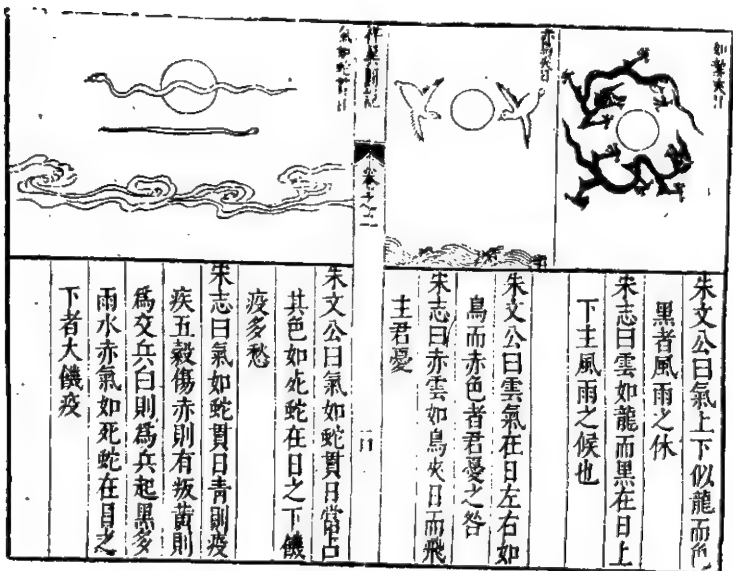 朱文公曰氣上下似龍而色
黑者風雨之休
宋志曰雲如龍而黑在日上
下主風雨之候也
赤鳥夾日
朱文公曰雲氣在日左右如
鳥而赤色者君憂之咎
宋志曰赤雲如鳥夾日而飛
主君憂
卷之二
氣如蛇貫日
朱文公曰氣如蛇貫日當占
其色如死蛇在日之下饑
疫多愁
宋志曰氣如蛇貫日青則疫
疾五穀傷赤則有叛黃則
爲交兵白則爲兵起黑多
雨水赤氣如死蛇在日之
下者大饑疫